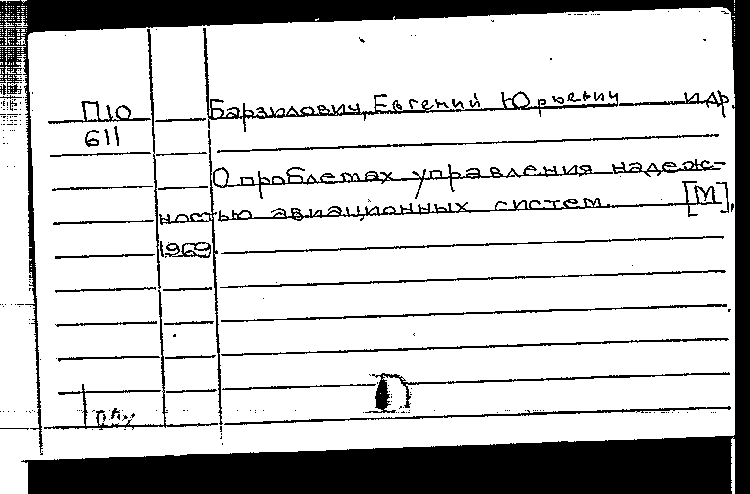 П10 Барзилович, Евгений Юрьевич и др.
611
О проблемах управления надеж-
ностью авиационных систем. [М],
1969